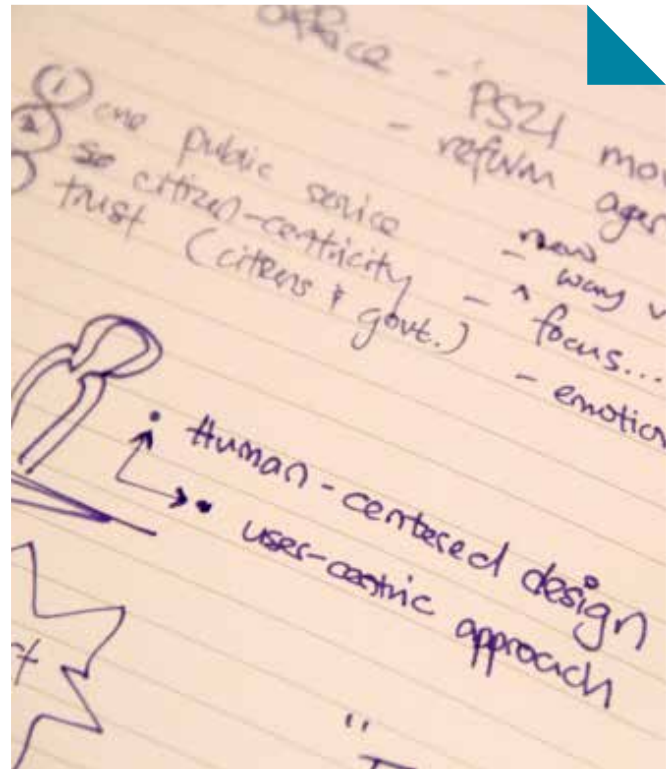 office - PS21 mov
- reform agen
① one public service
② so citizen-centricity - new way
trust (citizens & govt.) - focus...
- emotion
• Human-centered design
• user-centric approach
"